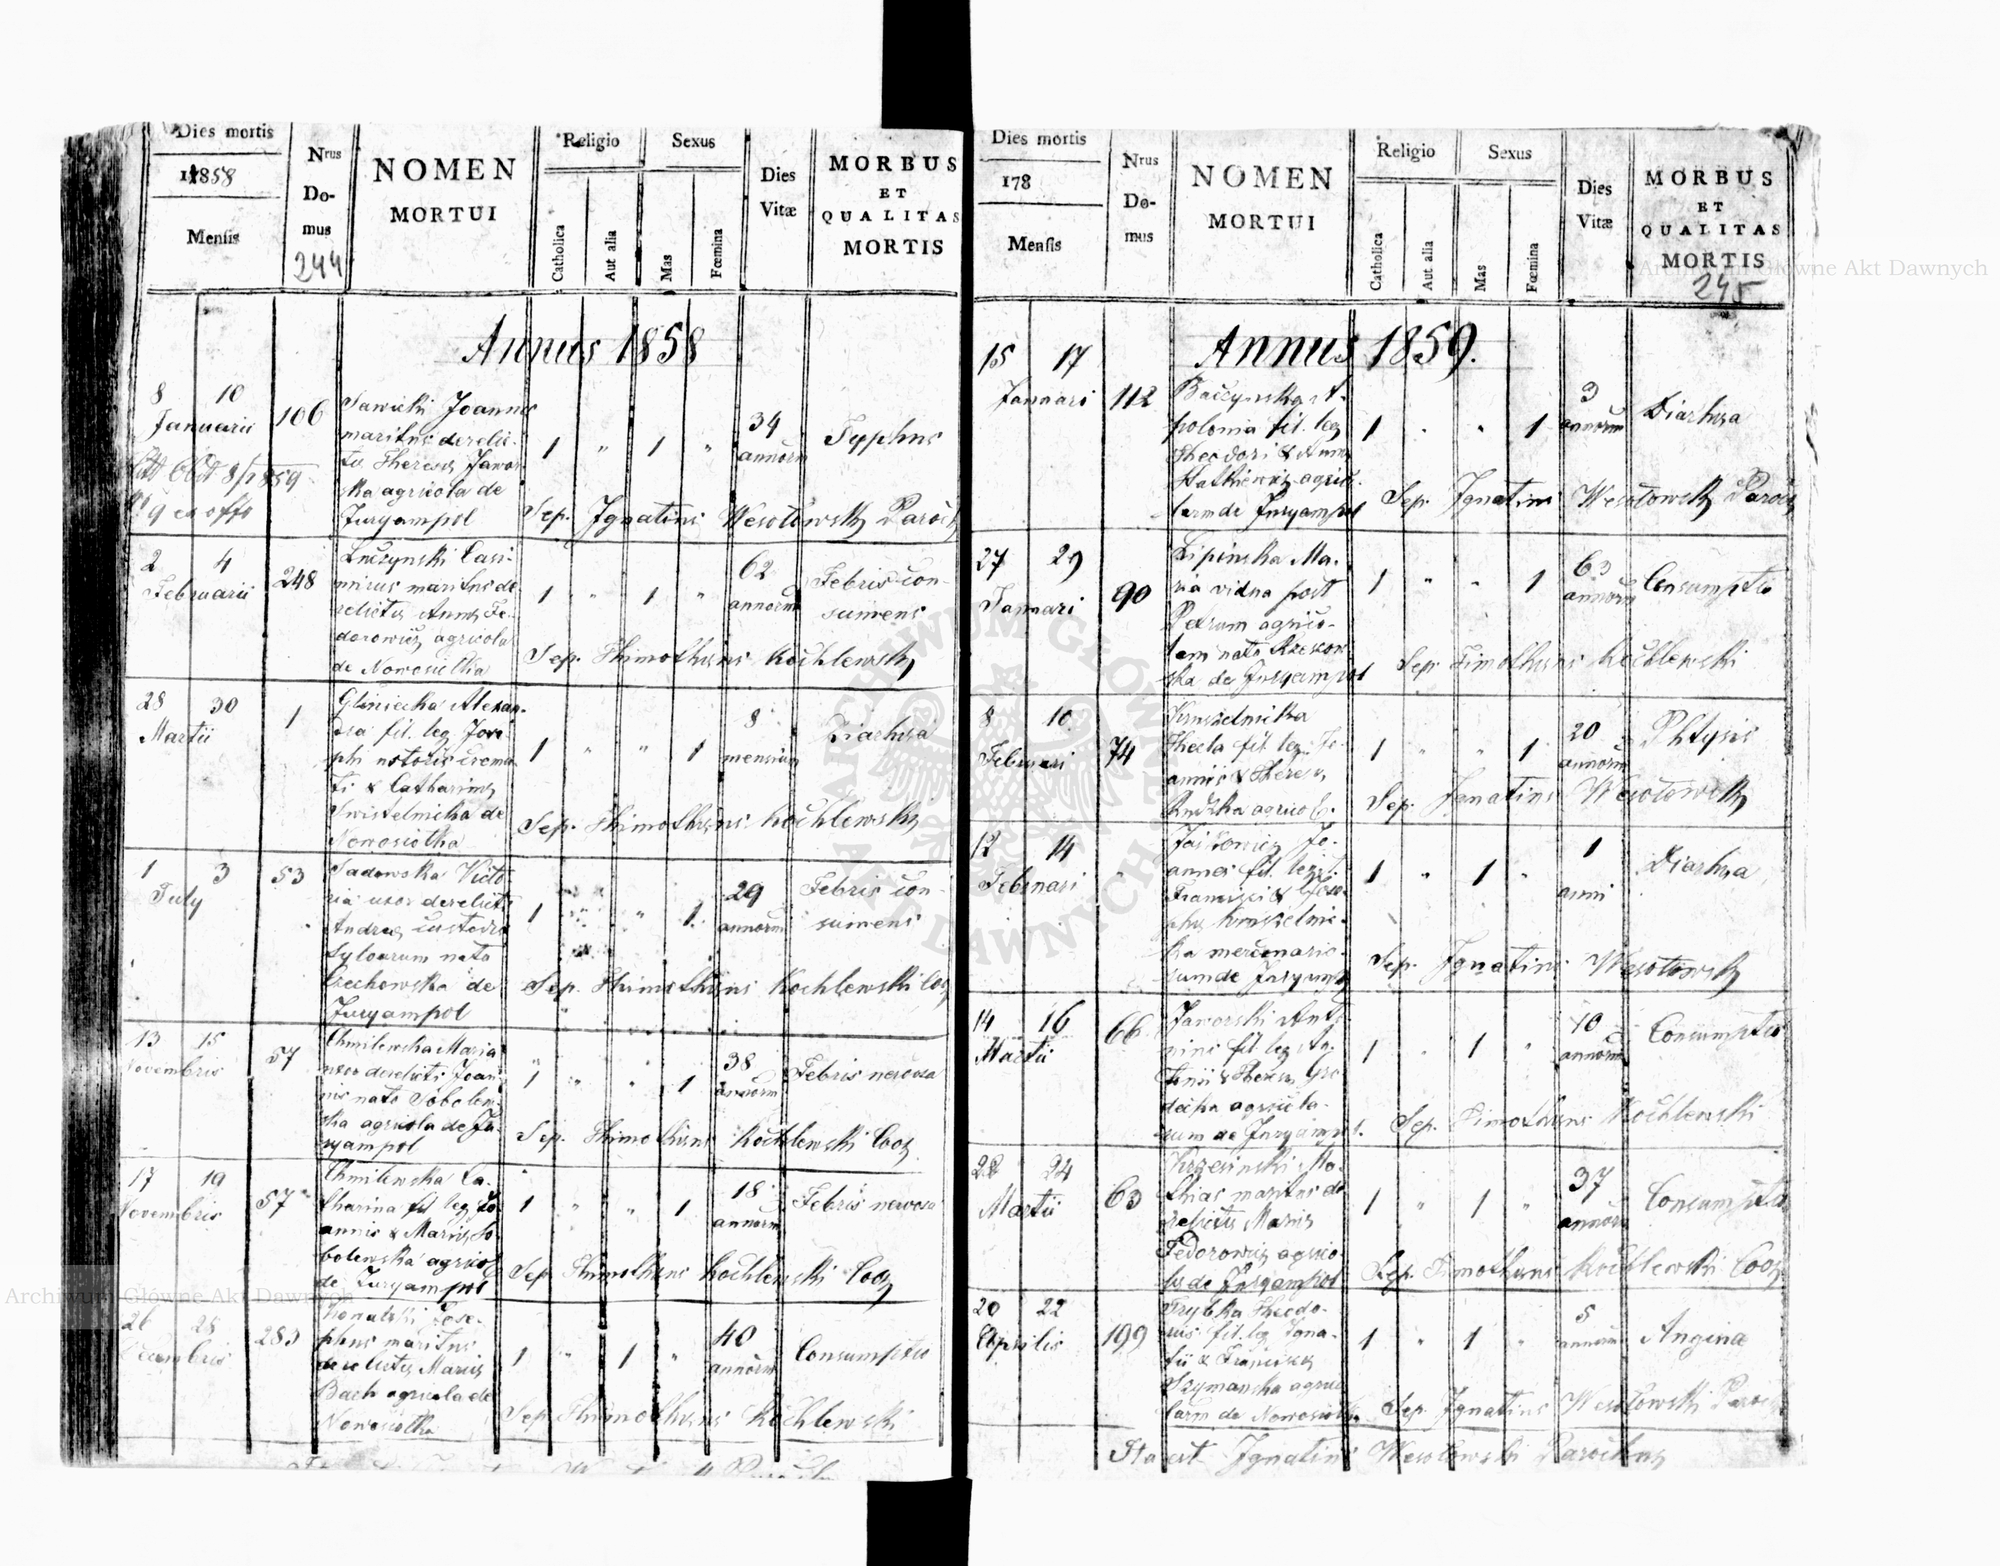 Dies mortis
11858
Mensis
Nrus
Do-
mus
244
NOMEN
MORTUI
Religio
Catholica
Aut alia
Sexus
Mas
Fœmina
Dies
Vitæ
MORBUS
ET
QUALITAS
MORTIS
Annus 1858
8 10
Januarii
106
Sawicki Joannes
maritus derelic-
tus Theresæ Jawor
ska agricola de
Juryampol
1 " 1 "
34
annorum
Typhus
Sep. Ignatius Wesołowski Paroch
ex offo
2 4
Februarii
248
Casi-
mirus maritus de
relictus Annæ Fe-
dorowicz agricola
de Nowosiołka
1 " 1 "
62
annorum
Febris con-
sumens
Sep. Thimotheus Kochlewski
28 30
Martii
1
Gliniecka Alexan-
dra fil. leg. Jose-
phi
ti & Catharinæ
Swistelnicka de
Nowosiołka
1 " " 1
8
mensium
Diarhea
Sep. Thimotheus Kochlewski
1 3
July
53
Sadowska Victo
ria uxor derelicti
Andreæ custodis
Sylvarum nata
Orechowska de
Juryampol
1 " " 1
29
annorum
Febris con-
sumens
Sep. Thimotheus Kochlewski Coop
13 15
Novembris
57
Chmilewska Maria
uxor derelicti Joan-
nis nata Sobolew-
ska agricola de Ju-
ryampol
1 " " 1
38
annorum
Febris nervosa
Sep. Thimotheus Kochlewski Coop
17 19
Novembris
57
Chmilewska Ca-
tharina fil leg Jo
annis & Mariæ So
bolewska agricol
de Juryampol
1 " " 1
18
annorum
Febris nervosa
Sep. Thimotheus Kochlewski Coop
26 28
Decembris
283
Jose-
phus maritus
derelictus Mariæ
Bach agricola de
Nowosiołka
1 " 1 "
40
annorum
Consumptio
Sep. Thimotheus Kochlewski
Dies mortis
178
Mensis
Nrus
Do-
mus
NOMEN
MORTUI
Religio
Catholica
Aut alia
Sexus
Mas
Fœmina
Dies
Vitæ
MORBUS
ET
QUALITAS
MORTIS
245
Annus 1859.
15 17
Januari
112
Baczynska A-
polonia fil. leg
Theodori & Annæ
agrico-
larum de Juryampol
1 " " 1
3
annorum
Diarhea
Sep. Ignatius Wesołowski Paroch
27 29
Januari
90
Lipinska Ma-
ria vidua post
Petrum agrico-
lam nata Rzeszow
ska de Juryampol
1 " " 1
63
annorum
Consumptio
Sep. Timotheus Kochlewski
8 10
Februari
74
Kruszelnicka
Thecla fil leg. Jo-
annis & Theresæ
Ruzka agricol.
1 " " 1
20
annorum
Phtysis
Sep. Ignatius Wesołowski
12 14
Februari
"
Jo-
annes fil. legit.
Francisci & Jose-
phæ Kruszelnic-
ka mercenario-
rum de Juryampol
1 " 1 "
1
anni
Diarhea
Sep. Ignatius Wesołowski
14 16
Martii
66
Jaworski Anto-
ninus fil leg An-
tonii & Theresæ Gro
decka agricola-
rum de Juryampol.
1 " 1 "
10
annorum
Consumptio
Sep. Timotheus Kochlewski
22 24
Martii
63
Krzesinski Ma-
thias maritus de
relictus Mariæ
Fedorowicz agrico-
la de Juryampol
1 " 1 "
37
annorum
Consumptio
Sep. Timotheus Kochlewski Coop
20 22
Aprilis
199
Trybka Theodo-
rus fil. leg Igna-
tii & Franciscæ
Szymanska agrico
larum de Nowosiołka
1 " 1 "
5
annorum
Angina
Sep. Ignatius Wesołowski Paroch
Ita est Ignatius Wesołowski Parochus
Archiwum Główne Akt Dawnych
Archiwum Główne Akt Dawnych
ARCHIWUM GŁÓWNE AKT DAWNYCH